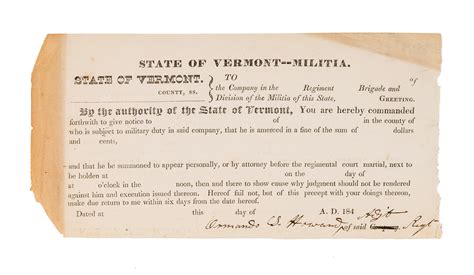 STATE OF VERMONT--MILITIA.
STATE OF VERMONT. TO of
COUNTY, SS. the Company in the Regiment Brigade and
Division of the Militia of this State, GREETING.
By the authority of the State of Vermont, You are hereby commanded
forthwith to give notice to of in the county of
who is subject to military duty in said company, that he is amerced in a fine of the sum of dollars
and cents,
and that he be summoned to appear personally, or by attorney before the regimental court martial, next to
be holden at on the day of
at o'clock in the noon, then and there to show cause why judgment should not be rendered
against him and execution issued thereon. Hereof fail not, but of this precept with your doings thereon,
make due return to me within six days from the date hereof.
Dated at this day of A. D. 184 Adjt
Ormando S. Howard, of said Company, Regt